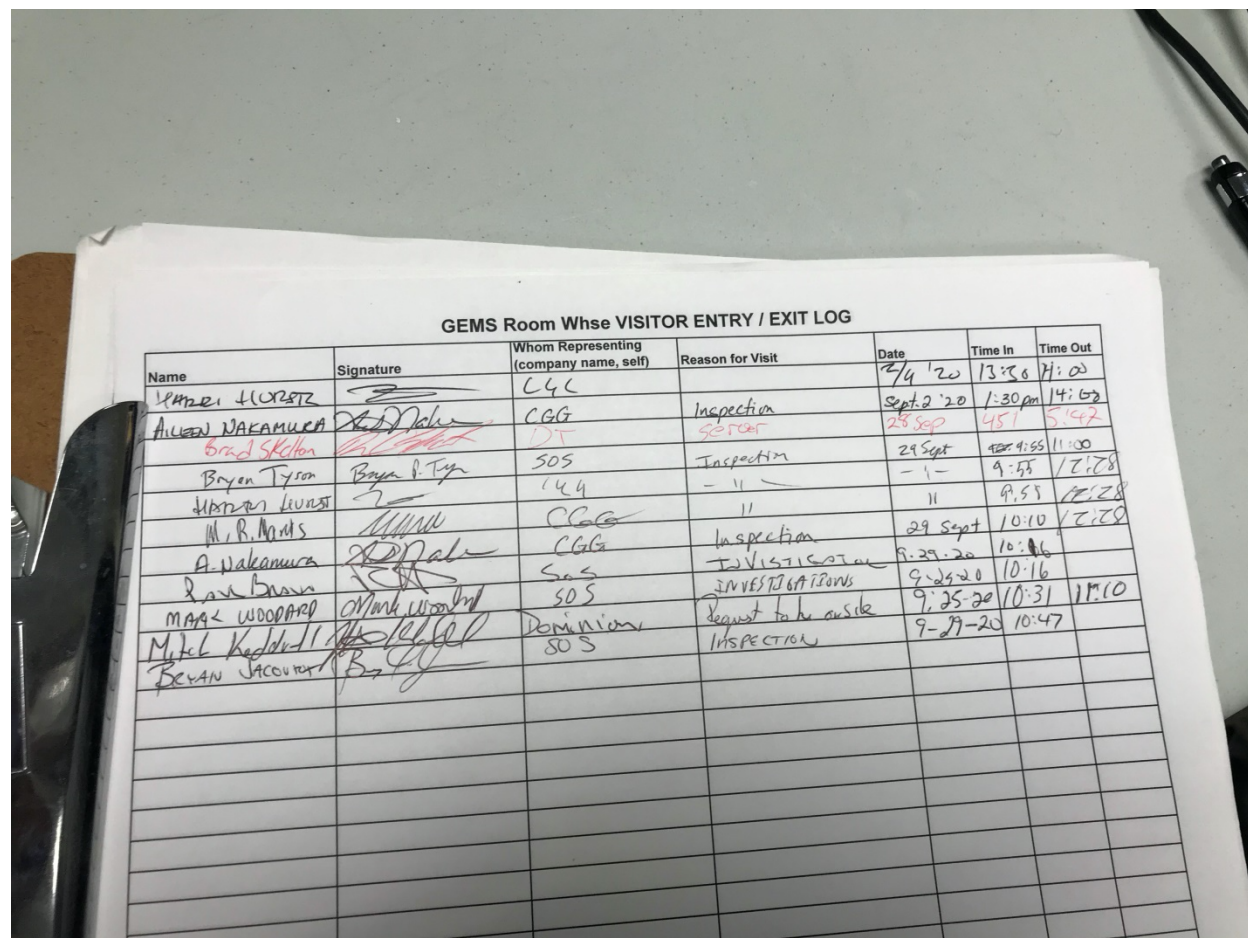 GEMS Room Whse VISITOR ENTRY / EXIT LOG
Name Signature Whom Representing (company name, self) Reason for Visit Date Time In Time Out
HURST 2/9 '20 13:30
AILEEN NAKAMURA CGG Inspection Sept. 2 '20 1:30 pm
Brad Skelton DT Server 28 Sep 451 5:47
Bryan Tyson Bryan P. Tyson SOS Inspection 29 Sept 9:55 11:00
HURST - 11 - - 1 - 9:55 12:28
M. R. Marks CGG 11 11 9:55 12:28
A. Nakamura CGG Inspection 29 Sept 10:10 12:28
Brown SoS 9.29.20 10:16
MARK WOODARD Mark SOS INVESTIGATIONS 9-29-20 10:16
Mitch Dominion Request to be onsite 10:31
BRYAN SOS INSPECTION 9-29-20 10:47